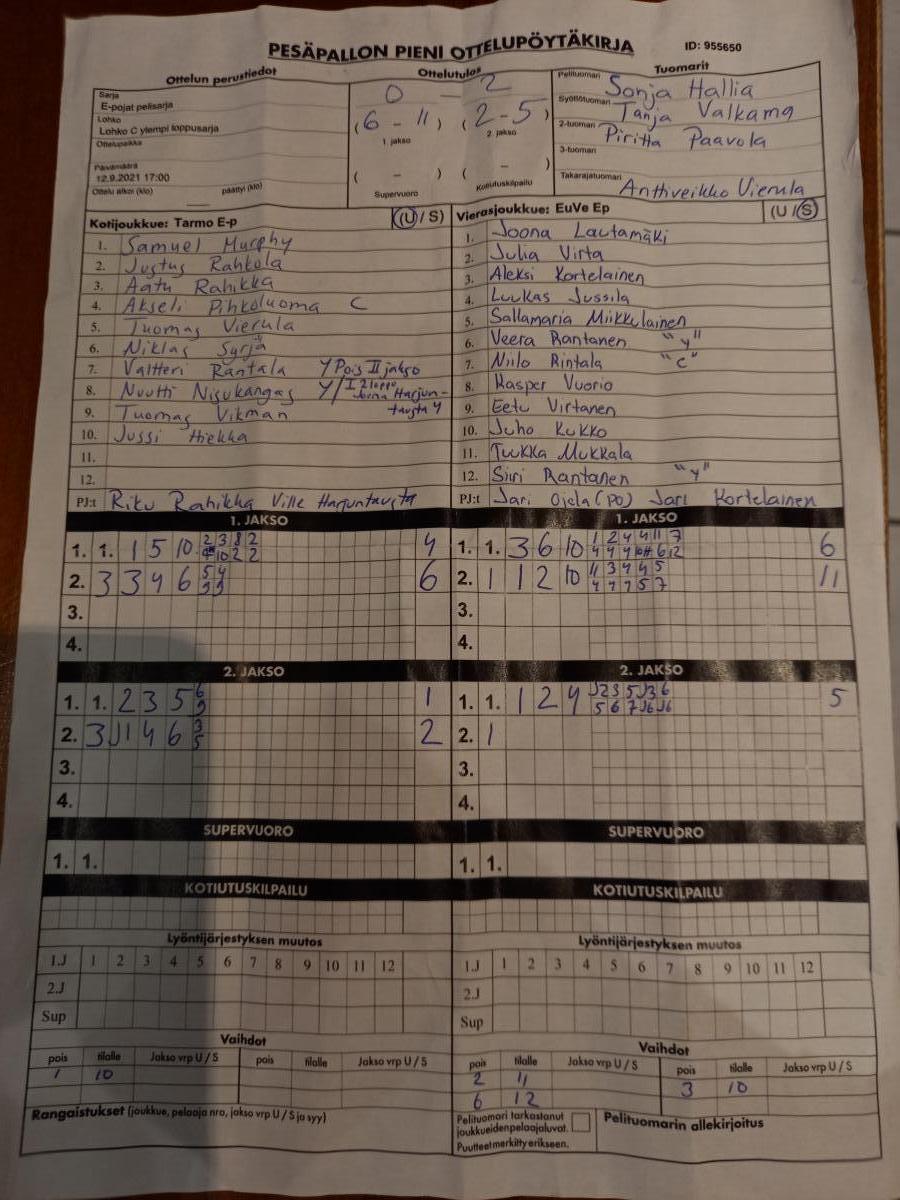 PESÄPALLON PIENI OTTELUPÖYTÄKIRJA ID: 955650
Ottelun perustiedot Ottelutulos Tuomarit
Sarja
E-pojat pelisarja
Lohko
Lohko C ylempi loppusarja
Ottelupaikka
Päivämäärä
12.9.2021 17:00
Ottelu alkoi (klo) päättyi (klo)
0 - 2
(6 - 11) (2 - 5)
1. jakso 2. jakso
( - ) ( - )
Supervuoro Kotiutuskilpailu
Pelituomari Sonja Hallia
Syöttötuomari Tanja Valkama
2-tuomari Piritta Paavola
3-tuomari
Takarajatuomari Anttiveikko Vierula
Kotijoukkue: Tarmo E-p (U / S)
1. Samuel Murphy
2. Justus Rahkola
3. Aatu Rahikka
4. Akseli Pihkoluoma C
5. Tuomas Vierula
6. Niklas Syrjä
7. Valtteri Rantala Y Pois II jakso
8. Nuutti Nisukangas Y/
9. Tuomas Vikman
10. Jussi Hiekka
11.
12.
PJ:t Riku Rahikka Ville Harjuntausta
Vierasjoukkue: EuVe Ep (U / S)
1. Joona Lautamäki
2. Julia Virta
3. Aleksi Kortelainen
4. Luukas Jussila
5. Sallamaria Miikkulainen
6. Veera Rantanen "y"
7. Niilo Rintala "c"
8. Kasper Vuorio
9. Eetu Virtanen
10. Juho Kukko
11. Tuukka Mukkala
12. Siiri Rantanen "y"
PJ:t Jari Ojela (PO) Jari Kortelainen
1. JAKSO
1. 1. 1 5 10 4
2. 3 3 4 6 6
3.
4.
1. JAKSO
1. 1. 3 6 10 6
2. 1 1 2 10 11
3.
4.
2. JAKSO
1. 1. 2 3 5 1
2. 3 J1 4 6 3 5 2
3.
4.
2. JAKSO
1. 1. 1 2 4 5
2. 1
3.
4.
SUPERVUORO
1. 1.
SUPERVUORO
1. 1.
KOTIUTUSKILPAILU
KOTIUTUSKILPAILU
Lyöntijärjestyksen muutos
1.J 1 2 3 4 5 6 7 8 9 10 11 12
2.J
Sup
Lyöntijärjestyksen muutos
1.J 1 2 3 4 5 6 7 8 9 10 11 12
2.J
Sup
Vaihdot
pois tilalle Jakso vrp U / S pois tilalle Jakso vrp U / S
1 10
Vaihdot
pois tilalle Jakso vrp U / S pois tilalle Jakso vrp U / S
2 11 3 10
6 12
Rangaistukset (joukkue, pelaaja nro, jakso vrp U / S ja syy)
Pelituomari tarkastanut
joukkueiden pelaajaluvat.
Puutteet merkitty erikseen.
Pelituomarin allekirjoitus